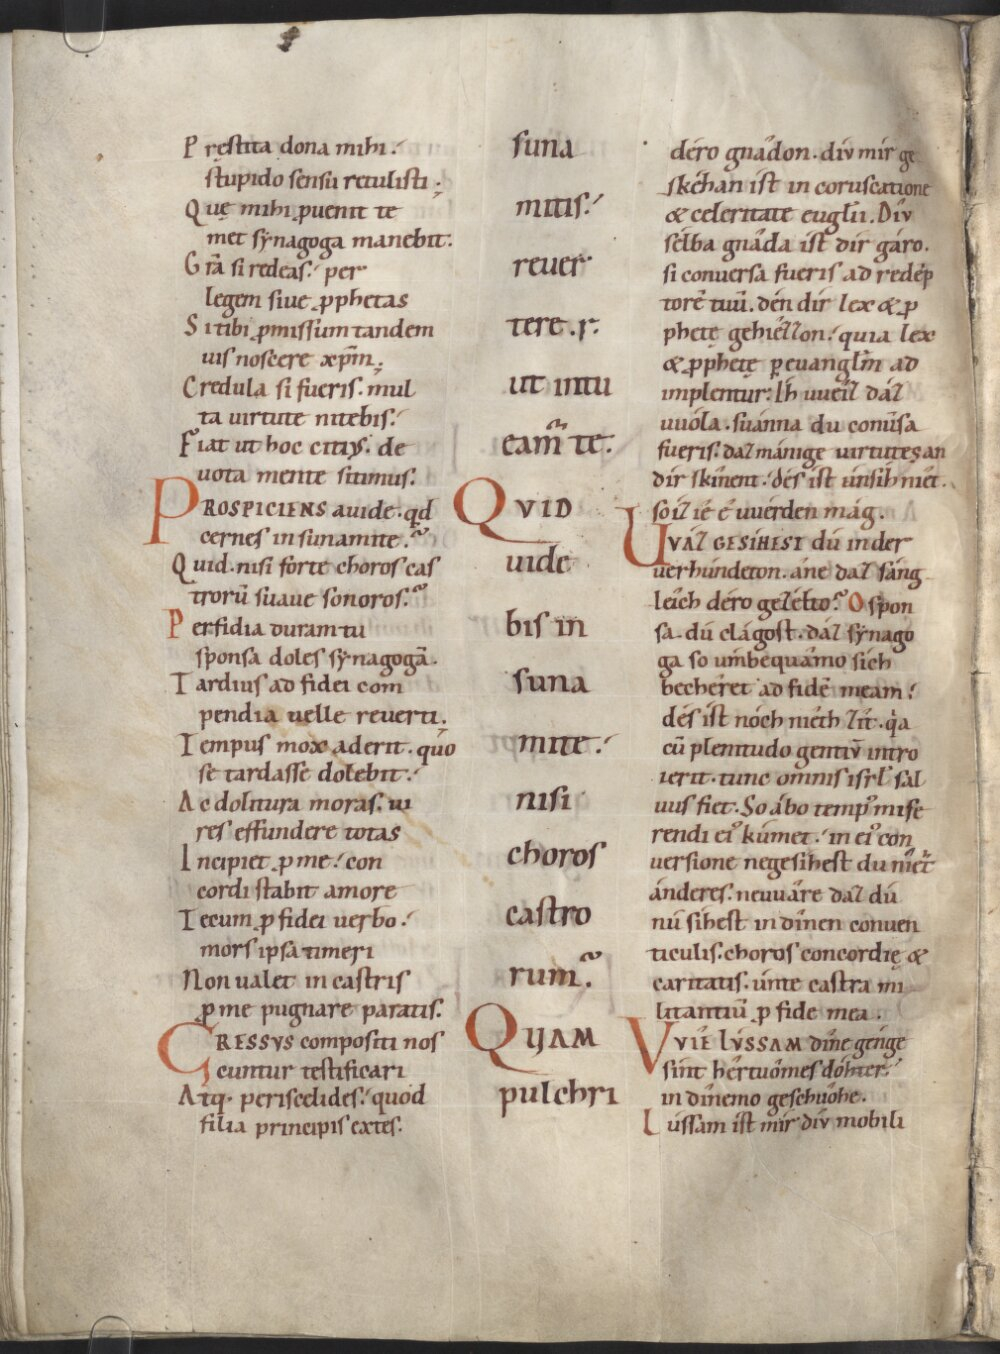 Pręstita dona mihi.
stupido sensu retulisti;
Quę mihi ꝓuenit te
met sẏnagoga manebit.
Grã si redeas. per
legem siue ꝓphetas
Si tibi ꝓmissum tandem
uis noscere xp̄m;
Credula si fueris. mul
ta uirtute nitebis.
Fiat ut hoc citiꝰ. de
uota mente sitimus.
PROSPICIENS auide. qd
cernes in sunamite.
Quid. nisi forte choros cas
trorũ suaue sonoros.
Perfidia duram tu
sponsa doles sẏnagogã.
Tardius ad fidei com
pendia uelle reuerti.
Tempus mox aderit. quo
se tardasse dolebit.
Ac dolitura moras. ui
res effundere totas
Incipiet ꝓ me. con
cordi stabit amore
Tecum ꝓ fidei uerbo.
mors ipsa timeri
Non ualet in castris
ꝓ me pugnare paratis.
GRESSVS compositi nos
cuntur testificari
Atq. periscelides. quod
filia principis extes.
suna
mitis.
reuer
tere. r.
ut intu
eam̃ te.
QVID
uide
bis in
suna
mite.
nisi
choros
castro
rum.
QUAM
pulchri
déro gnâdon. div mir ge
skéhan ist in coruscatione
& celeritate euglii. Div
sélba gnâda ist dir gáro.
si conuersa fueris ad redẽp
torẽ tuũ. dén dir lex & ꝓ
phetę gehiézzon. quia lex
& ꝓphetę ꝑ euanglm̃ ad
implentur. Ih uueiz daz
uuóla. suánna du conũsa
fueris. daz mánige uirtutes an
dir skînent. dés ist únsih niét.
só iz ié é uuérden mág.
UVAZ GESIHEST dú in der
uerhúndeton. áne daz sáng
leich déro gezélto. O spon
sa. dú clágost. daz sẏnago
ga so umbequâmo sich
bechêret ad fidẽ meam.
dés ist nóch niéth zît. q̇a
cũ plenitudo gentiũ intro
ierit. tunc omnis isrl̃ sal
uus fiet. So ábo tempꝰ mise
rendi eiꝰ kúmet. in eiꝰ con
uersione negesihest du niẽt
ánderes. neuuâre daz dú
nú sihest in dînen conuen
ticulis. choros concordię &
caritatis. únte castra mi
litantiũ ꝓ fide mea.
VVIE LVSSAM dîne génge
sint hêrtuômes dóhter.
in dînemo geschuôhe.
Lussam ist mir div mobili